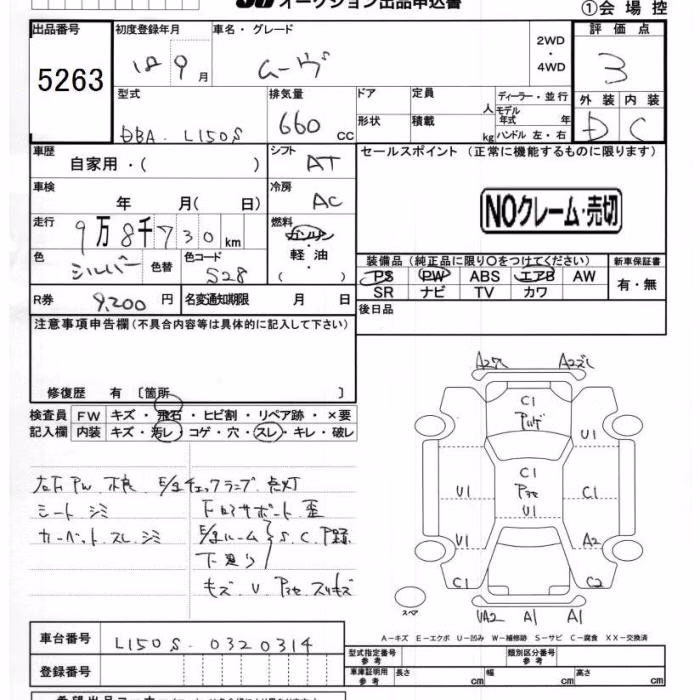 オークション出品申込書
①会場控
出品番号
5263
初度登録年月
18 9月
車名・グレード
ムーヴ
2WD
・
4WD
評価点
3
外装 内装
D C
型式
DBA. L150S
排気量
660 CC
ドア
定員 人
形状
積載 kg
ディーラー・並行
モデル年式 年
ハンドル 左・右
車歴
自家用・( )
シフト AT
車検
年 月( 日)
冷房 AC
走行
9万8千730km
燃料
ガソリン
・
軽油
( )
色
シルバー
色替
色コード
S28
R券
9,200円
名変通知期限 月 日
セールスポイント (正常に機能するものに限ります)
NOクレーム・売切
装備品(純正品に限り○をつけてください)
PS PW ABS エアB AW
SR ナビ TV カワ
新車保証書
有・無
後日品
注意事項申告欄(不具合内容等は具体的に記入して下さい)
修復歴 有〔箇所 〕
検査員 FW キズ・飛石・ヒビ割・リペア跡・×要
記入欄 内装 キズ・汚レ・コゲ・穴・スレ・キレ・破レ
左下PW 不良 E/gチェックランプ点灯
シート シミ 下回サポート 歪
カーペット スレ シミ E/gルーム S. C. P跡
下廻り
キズ U
A2
C1
U1
C1
P
U1
U1
C1
A2
C1
C2
スペア
UA2 A1 A1
A-キズ E-エクボ U-凹み W-補修跡 S-サビ C-腐食 XX-交換済
車台番号
L150S-0320314
登録番号
型式指定番号
参考
類別区分番号
参考
車庫証明用
参考
長さ cm
幅 cm
高さ cm